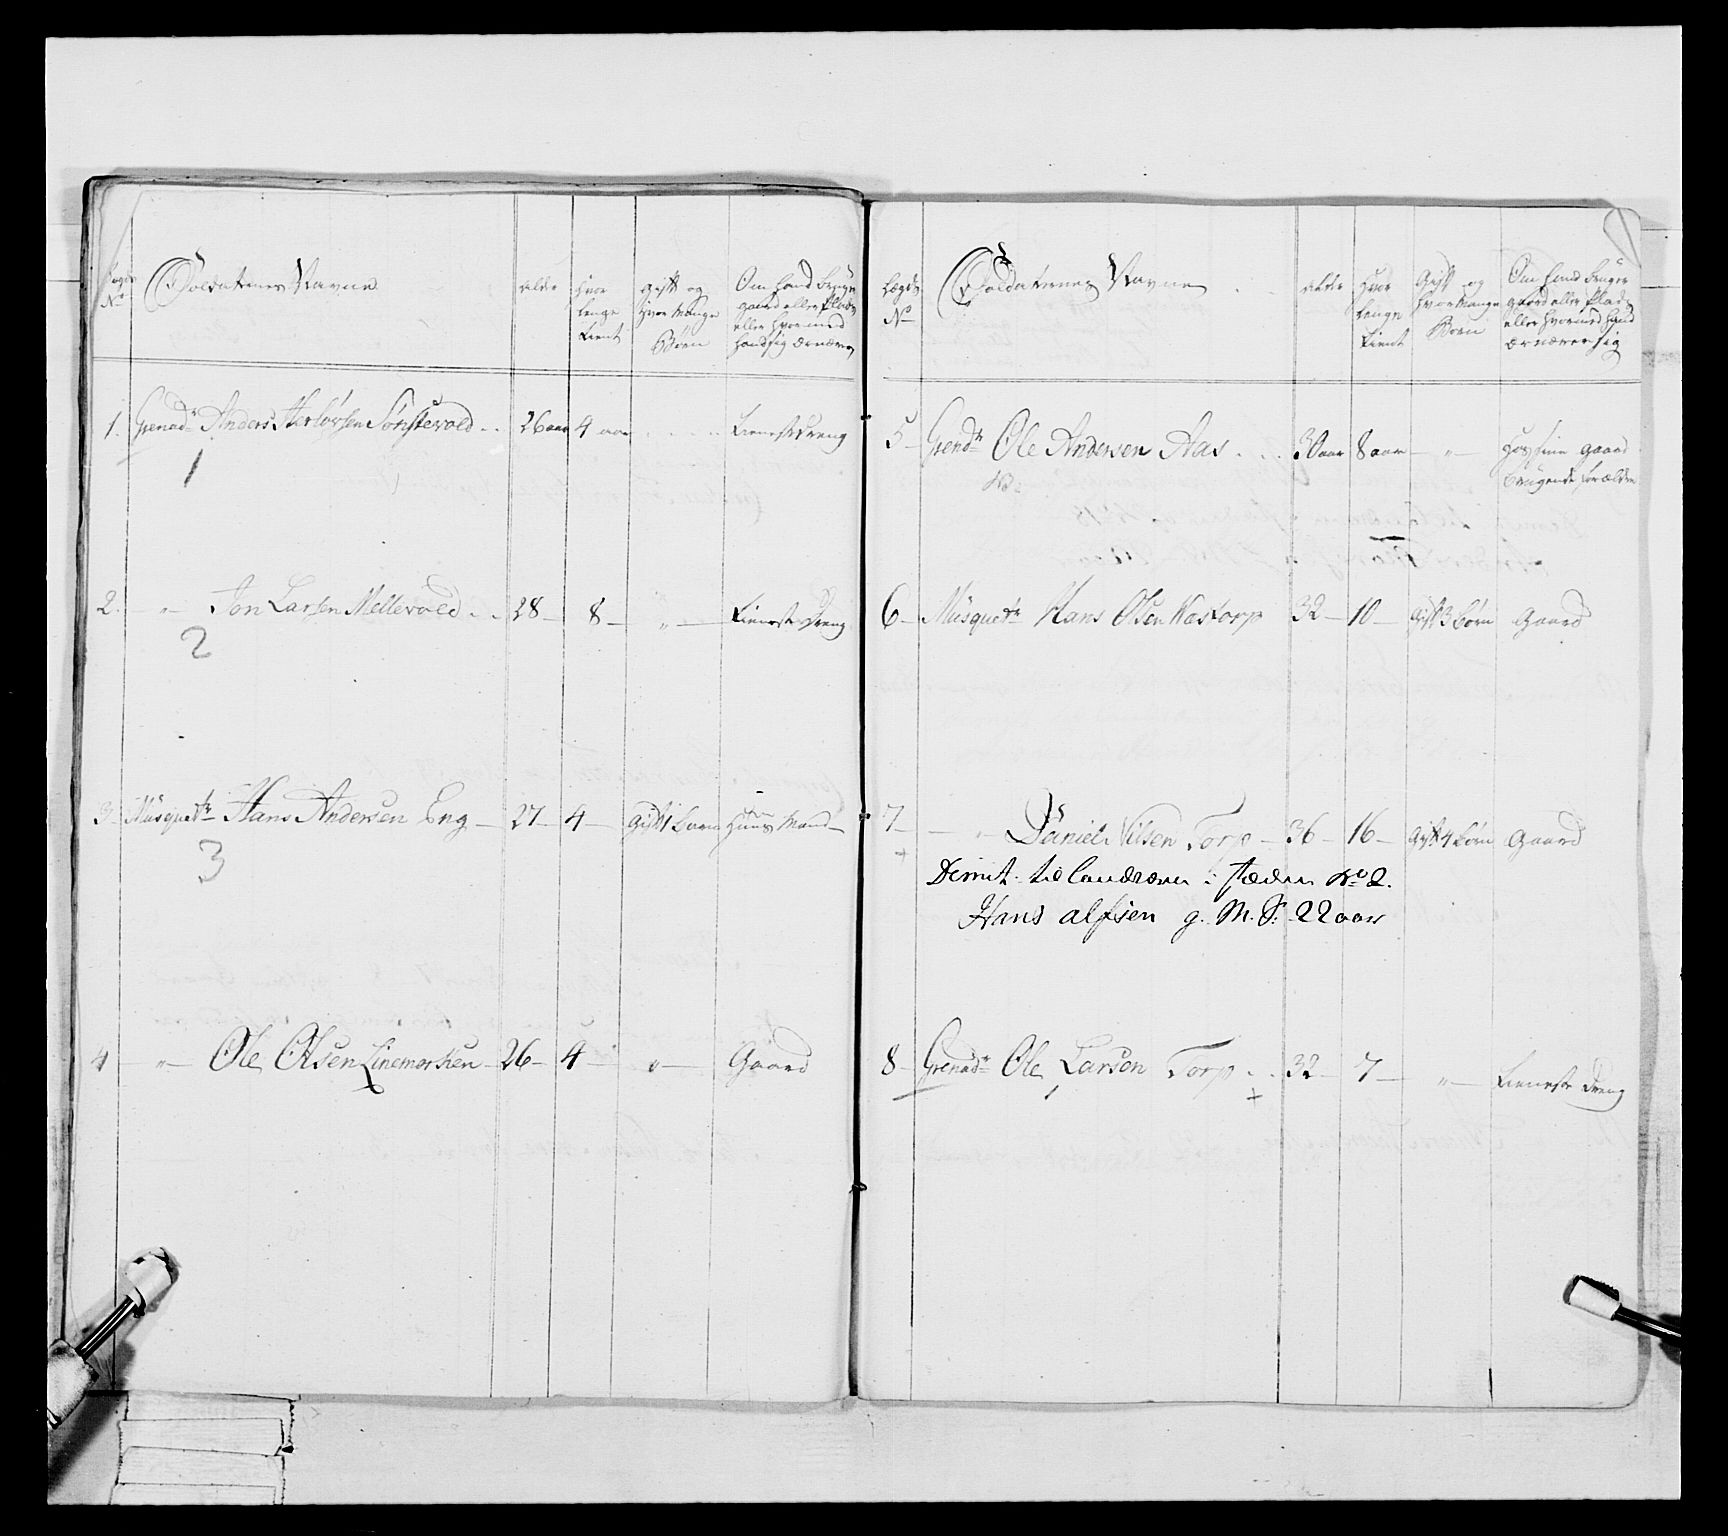 Lægds No Soldaternes Navne alder hvor lenge tient gift og hvor mange Børn Om hand bruger gaard eller Plads eller hvormed hand sig ernærer
1. Grenadr Anders Halvorsen Sønstevold 26 aar 4 aar Tieneste Dreng
1
2. " Jon Larsen Mellevold 28 8 " Tieneste Dreng
2
3 Musquetr Hans Andersen Eng 27 4 gift 1 barn Huus Mand
3
4 " Ole Olsen Linemarken 26 4 " Gaard
Lægds No Soldaternes Navne alder Hvor lenge tient Gift og hvor mange Børn Om hand bruger gaard eller Plads eller hvormed hand ernærer sig
5 Grendr Ole Andersen Aas 30 aar 8 aar " hos sine gaard
brugende forældre
6 Musquetr Hans Olsen Kastorp 32 10 gift 3 børn Gaard
7 " Daniel Nilsen Torp 36 16 gift 4 børn Gaard
Dimit. til landværn i stæden No 2.
Hans alfsen g. M. S. 22 aar
8 Grenadr Ole Larsen Torp 32 7 " Tieneste Dreng